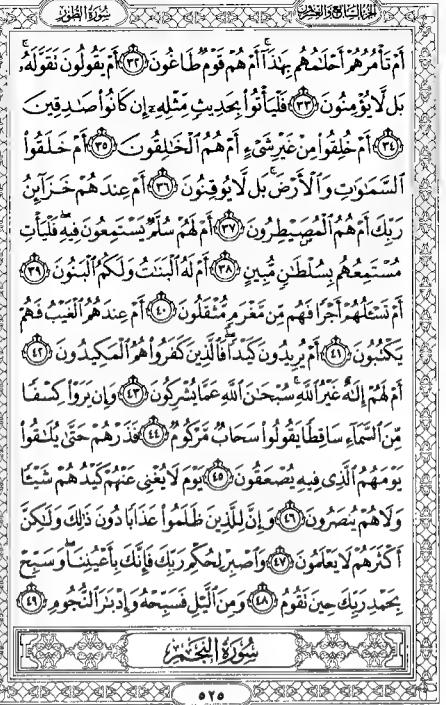 سُورَةُ الطُّورِ الجزء السابع والعشرون
أَمْ تَأْمُرُهُمْ أَحْلَٰمُهُم بِهَٰذَآ أَمْ هُمْ قَوْمٌ طَاغُونَ ٣٢ أَمْ يَقُولُونَ تَقَوَّلَهُۥ
بَل لَّا يُؤْمِنُونَ ٣٣ فَلْيَأْتُوا۟ بِحَدِيثٍ مِّثْلِهِۦٓ إِن كَانُوا۟ صَٰدِقِينَ
٣٤ أَمْ خُلِقُوا۟ مِنْ غَيْرِ شَىْءٍ أَمْ هُمُ ٱلْخَٰلِقُونَ ٣٥ أَمْ خَلَقُوا۟
ٱلسَّمَٰوَٰتِ وَٱلْأَرْضَ بَل لَّا يُوقِنُونَ ٣٦ أَمْ عِندَهُمْ خَزَآئِنُ
رَبِّكَ أَمْ هُمُ ٱلْمُصَۣيْطِرُونَ ٣٧ أَمْ لَهُمْ سُلَّمٌ يَسْتَمِعُونَ فِيهِ فَلْيَأْتِ
مُسْتَمِعُهُم بِسُلْطَٰنٍ مُّبِينٍ ٣٨ أَمْ لَهُ ٱلْبَنَٰتُ وَلَكُمُ ٱلْبَنُونَ ٣٩
أَمْ تَسْـَٔلُهُمْ أَجْرًا فَهُم مِّن مَّغْرَمٍ مُّثْقَلُونَ ٤٠ أَمْ عِندَهُمُ ٱلْغَيْبُ فَهُمْ
يَكْتُبُونَ ٤١ أَمْ يُرِيدُونَ كَيْدًا فَٱلَّذِينَ كَفَرُوا۟ هُمُ ٱلْمَكِيدُونَ ٤٢
أَمْ لَهُمْ إِلَٰهٌ غَيْرُ ٱللَّهِ سُبْحَٰنَ ٱللَّهِ عَمَّا يُشْرِكُونَ ٤٣ وَإِن يَرَوْا۟ كِسْفًا
مِّنَ ٱلسَّمَآءِ سَاقِطًا يَقُولُوا۟ سَحَابٌ مَّرْكُومٌ ٤٤ فَذَرْهُمْ حَتَّىٰ يُلَٰقُوا۟
يَوْمَهُمُ ٱلَّذِى فِيهِ يُصْعَقُونَ ٤٥ يَوْمَ لَا يُغْنِى عَنْهُمْ كَيْدُهُمْ شَيْـًٔا
وَلَا هُمْ يُنصَرُونَ ٤٦ وَإِنَّ لِلَّذِينَ ظَلَمُوا۟ عَذَابًا دُونَ ذَٰلِكَ وَلَٰكِنَّ
أَكْثَرَهُمْ لَا يَعْلَمُونَ ٤٧ وَٱصْبِرْ لِحُكْمِ رَبِّكَ فَإِنَّكَ بِأَعْيُنِنَا وَسَبِّحْ
بِحَمْدِ رَبِّكَ حِينَ تَقُومُ ٤٨ وَمِنَ ٱلَّيْلِ فَسَبِّحْهُ وَإِدْبَٰرَ ٱلنُّجُومِ ٤٩
سُورَةُ النَّجْمِ
٥٢٥